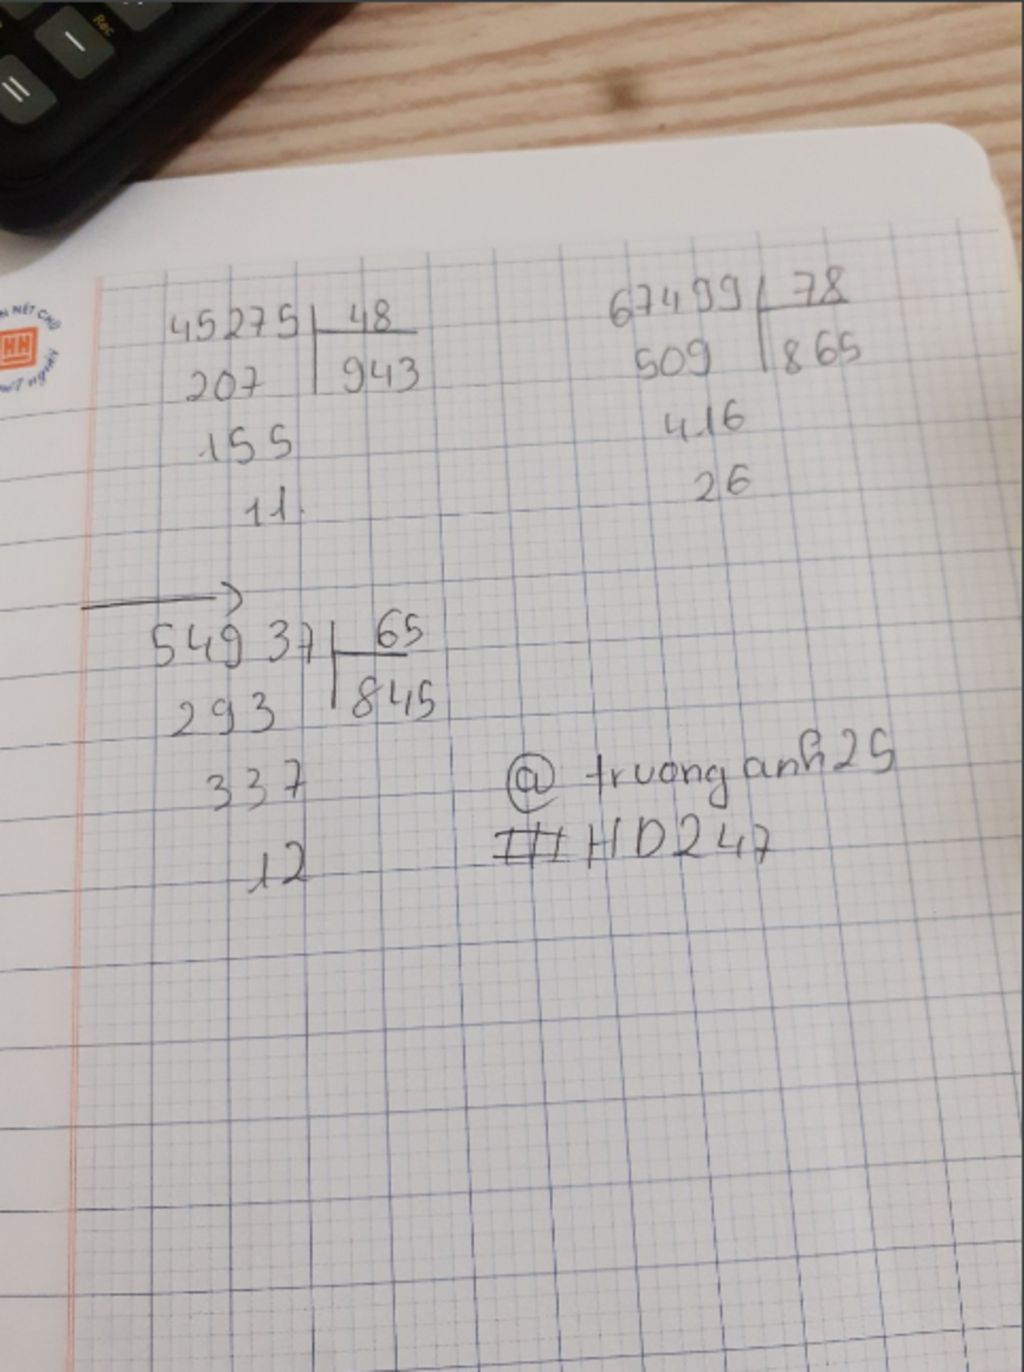 Rec
45275 48
207 943
155
11
67499 78
509 865
416
26
54937 65
293 845
337
12
@ truonganh25
# HD247
N NÉT CHỮ
HN